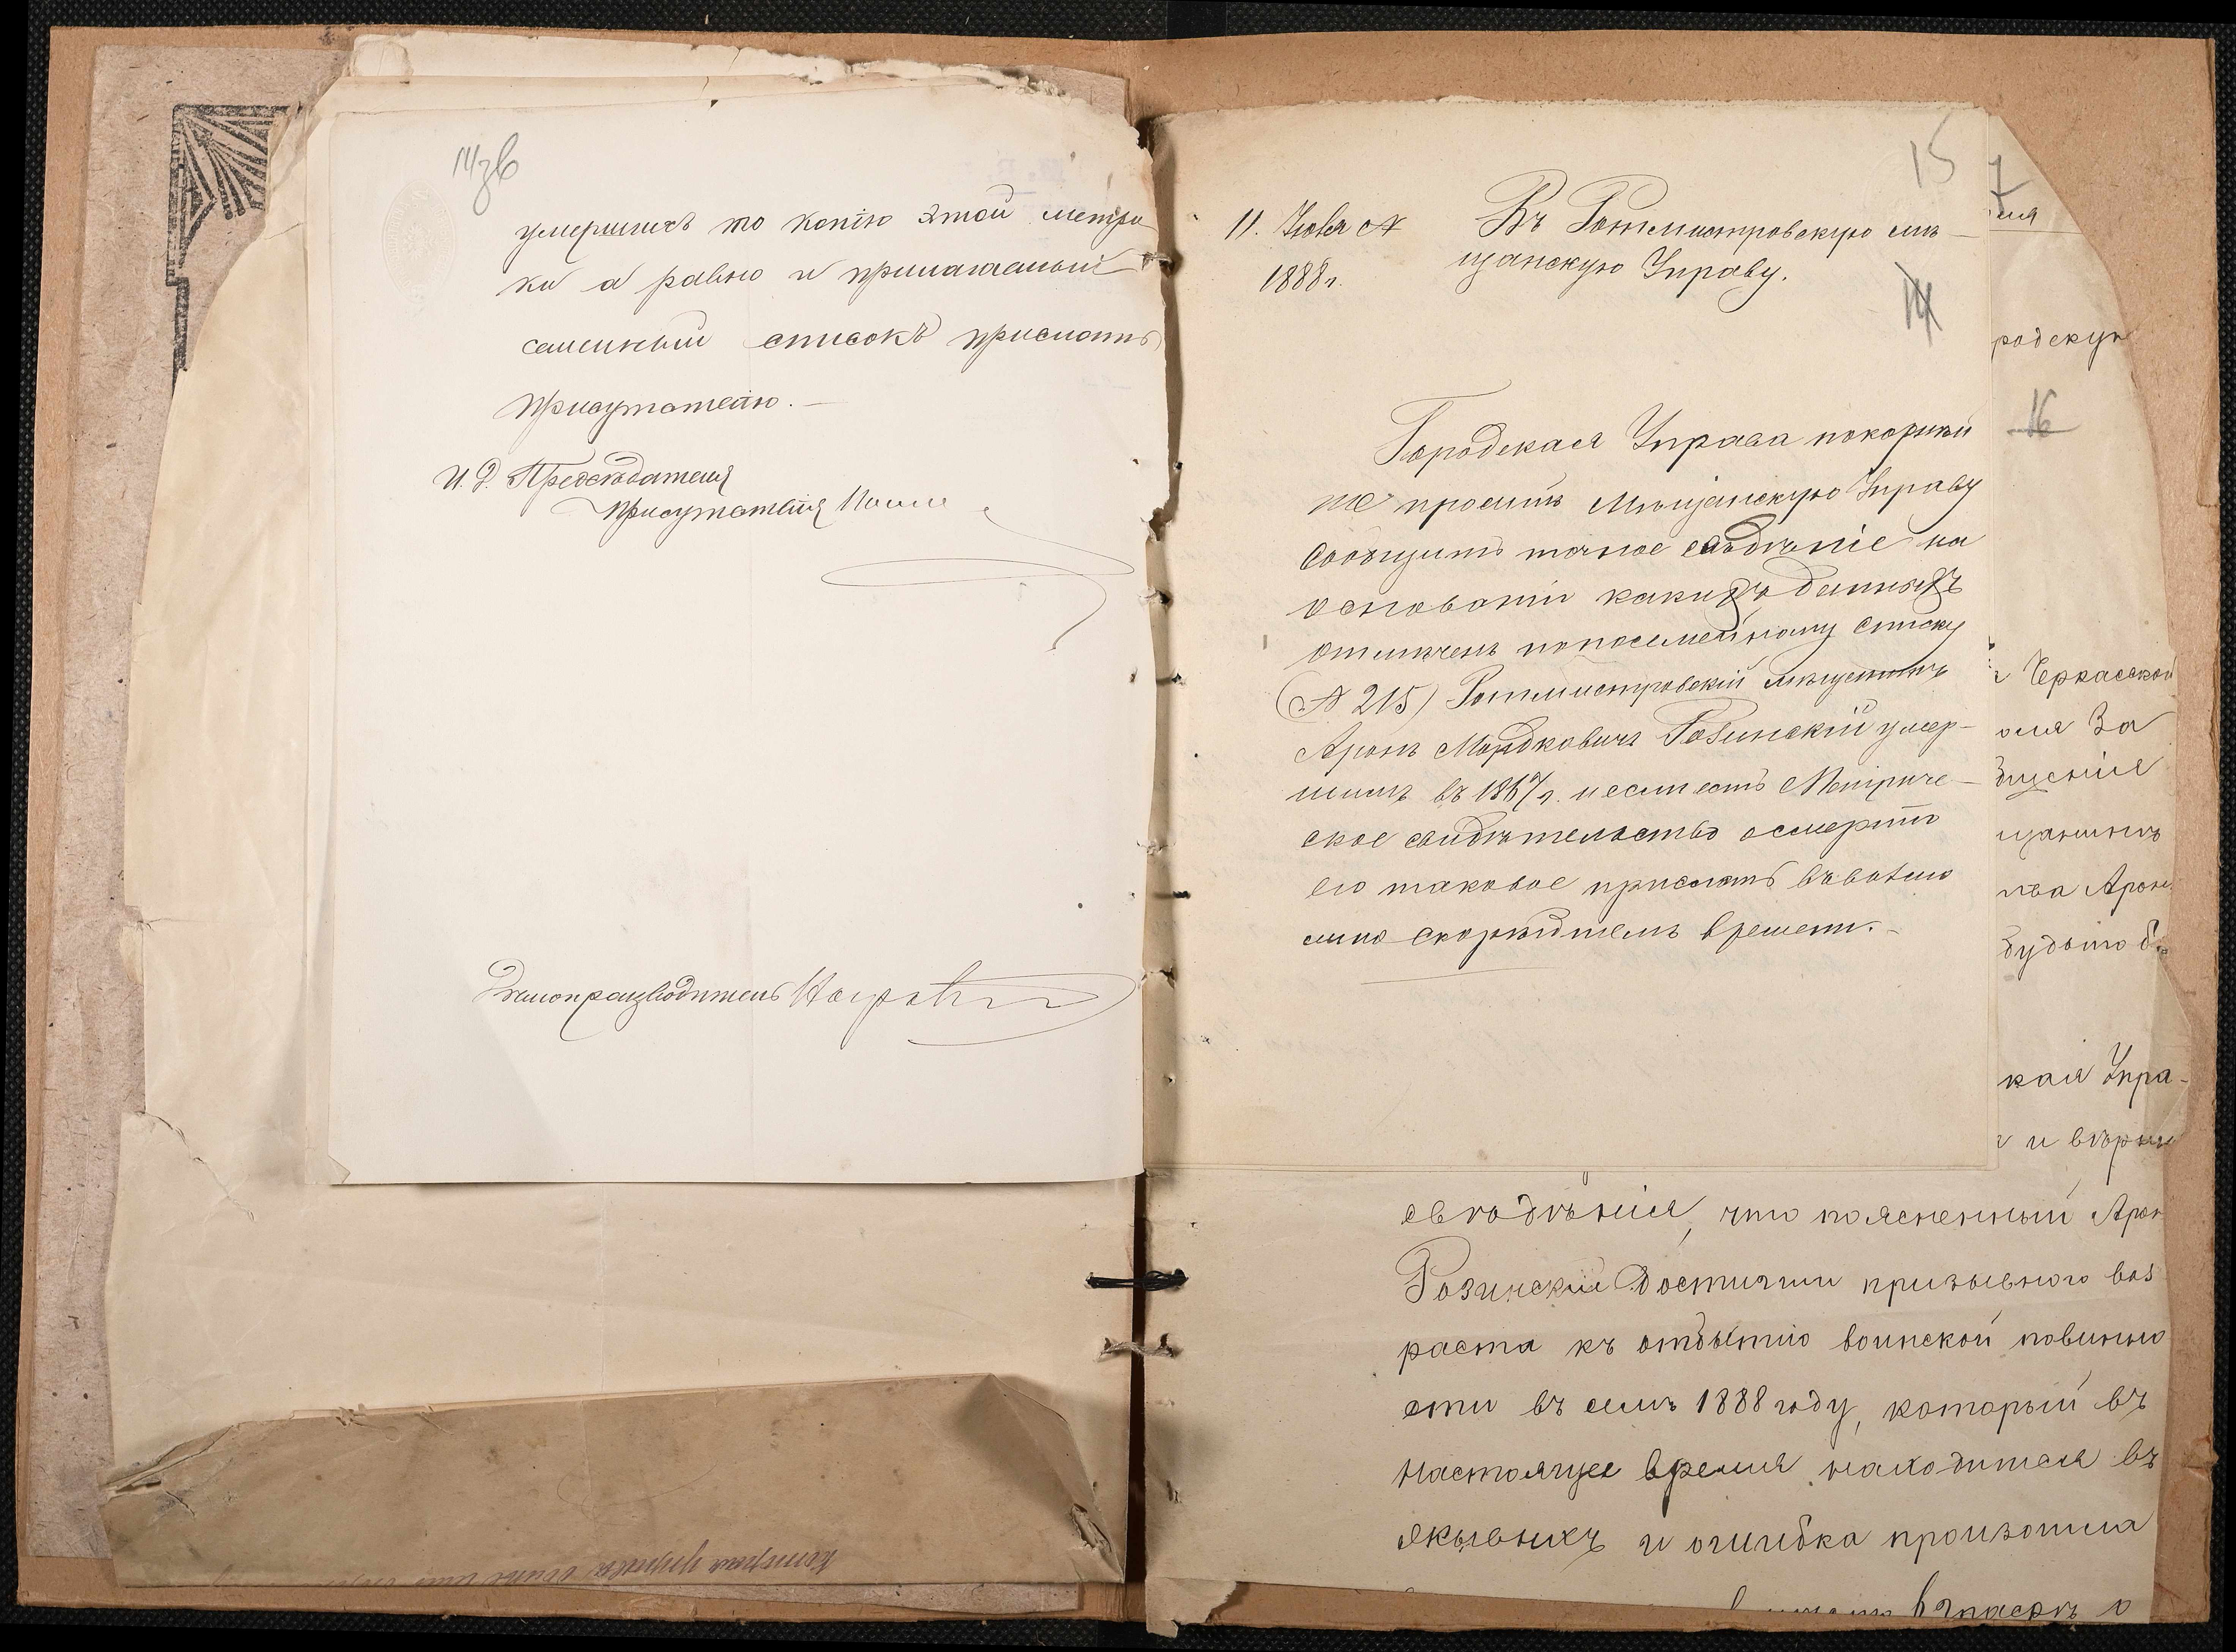 14 зв
умершихъ то копію этой метри-
ки а равно и прилагаемый
семейный списокъ прислать
Присутствію. —
И. Д. Предсѣдателя
Присутствія
Дѣлопроизводитель
15
11. Іюня №
1888 г.
Въ Ротмистровскую мѣ-
щанскую Управу.
14
Городская Управа покорнѣй
ше проситъ Мѣщанскую Управу
сообщить точное свѣдѣніе на
основаніи какихъ данныхъ
отмѣченъ по посемейному списку
(№ 215) Ротмистровскій мѣщанинъ
Аронъ Мордковичъ Розинскій умер-
шимъ въ 1867 г. и если есть Метриче-
ское свидѣтельство о смерти
его таковое прислать въ возмо
жно скорѣйшемъ времени. —
7
родскую
16
Черкаской
оля За
щанинъ
Арон
кая Упра-
и вѣрны
свѣдѣнія, что поясненный Арон
Розинскій достигши призывного воз
раста къ отбытію воинской повинно
сти въ семъ 1888 году, который въ
настоящее время находится въ
живыхъ и ошибка произошла